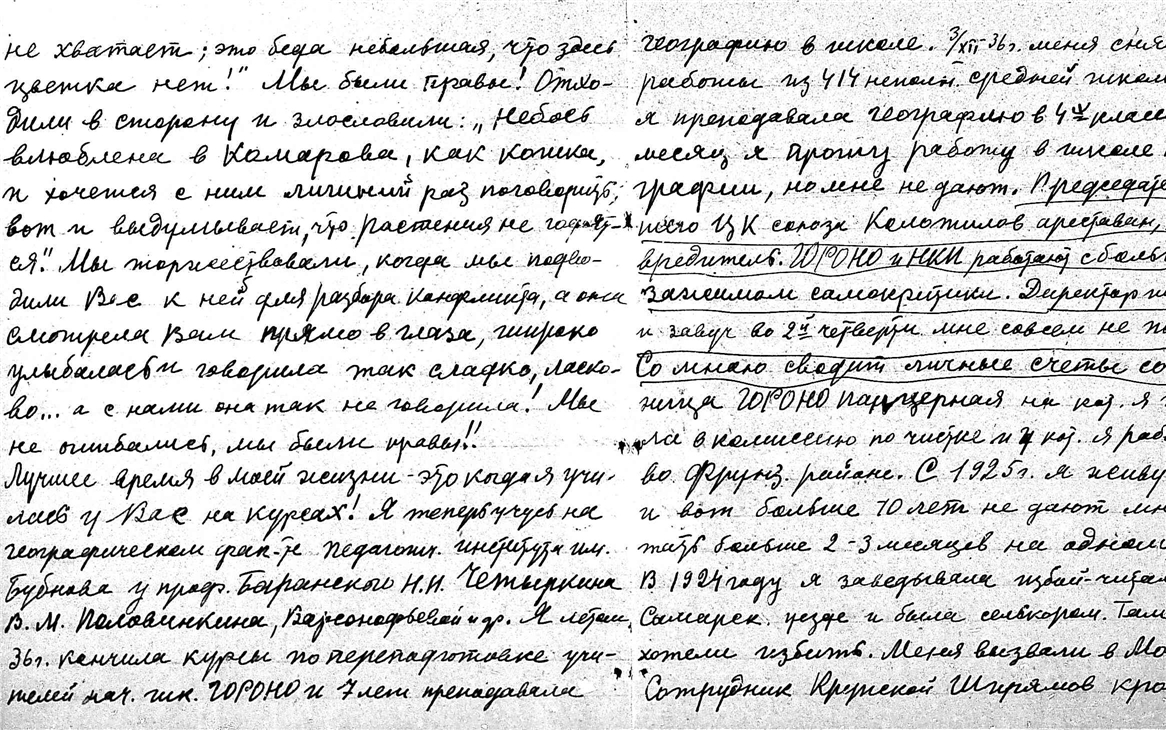 не хватает; это беда небольшая, что здесь
цветка нет!" Мы были правы! Отхо-
дили в сторону и злословили: „Небось
влюблена в Комарова, как кошка,
и хочется с ним лишний раз поговорить;
вот и выдумывает, что растения не годят-
ся." Мы торжествовали, когда мы подво-
дили Вас к ней для разбора конфликта, а она
смотрела Вам прямо в глаза, широко
улыбалась и говорила так сладко, ласко-
во... а с нами она так не говорила! Мы
не ошибались, мы были правы!!
Лучшее время в моей жизни - это когда я учи-
лась у Вас на курсах! Я теперь учусь на
географическом фак-те педагогич. института им.
Бубнова у проф. Баранского Н.Н. Четыркина
В.М. Половинкина, Варсонофьевой и др. Я летом
36г. кончила курсы по переподготовке учи-
телей нач. шк. ГОРОНО и 7 лет преподавала
географию в школе. 3/XII 36г. меня сня
работы из 414 неполн. средней школ
я преподавала географию в 4ых класс
месяц я прошу работу в школе
графии, но мне не дают. Председате
ЦК союза Коложилов арестован,
вредитель. ГОРОНО и НКП работают с боль
зажимом самокритики. Директор
и завуч во 2й четверти мне совсем не
Со мною сводит личные счеты со
ница ГОРОНО Панцерная на кот. я
ла в комиссию по чистке и у кот. я раб
во Фрунз. районе. С 1925г. я живу
и вот больше 10 лет не дают мн
жать больше 2-3 месяцев на одном
В 1924 году я заведывала избой-читал
Самарск. уезде и была селькором. Там
хотели избить. Меня вызвали в Мо
Сотрудник Крупской Ширямов кра